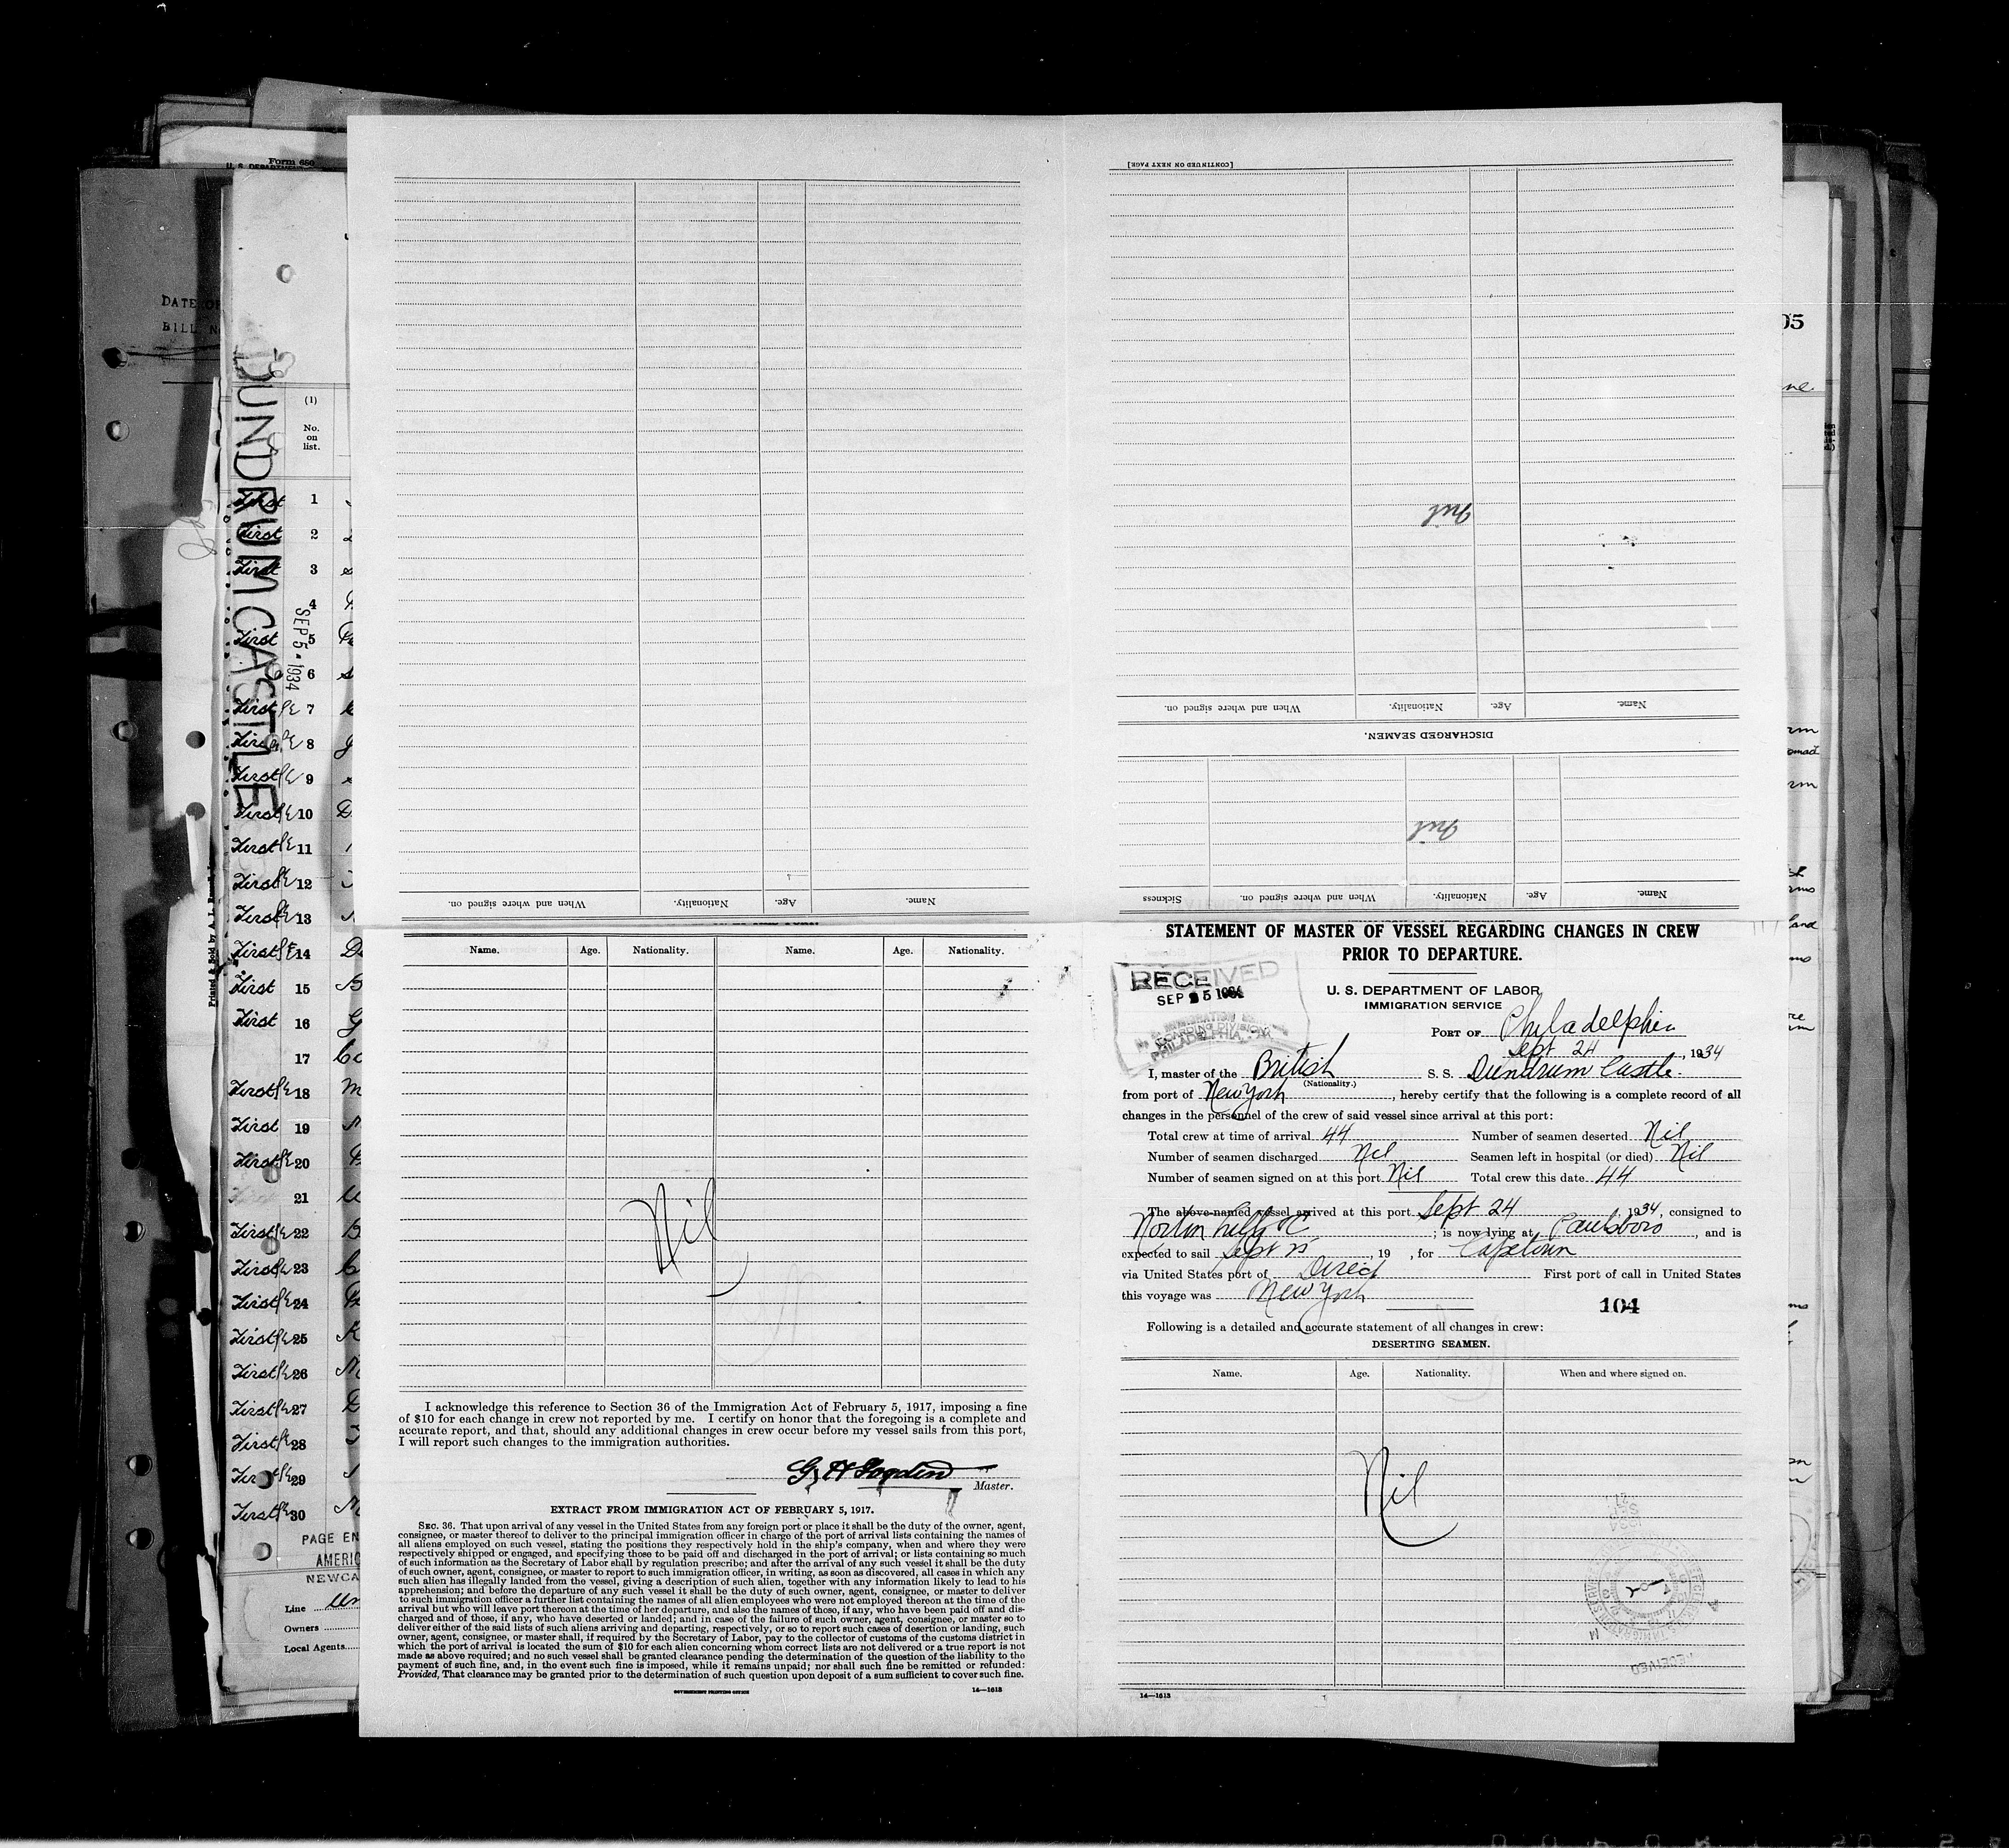 Form 680
DATE OF
BILL N
DUNDRUM CASTLE
SEP 5 - 1934
(1)
No.
on
list.
First 1
First 2
First 3
4
First 5
6
First 7
First 8
First 9
First 10
First 11
First 12
First 13
First 14
First 15
First 16
17
First 18
First 19
First 20
21
First 22
First 23
First 24
First 25
First 26
First 27
First 28
First 29
First 30
PAGE EN
AMERIC
NEWCA
Line
Owners
Local Agents
05
[CONTINUED ON NEXT PAGE]
Nil
Name. Age. Nationality. When and where signed on.
DISCHARGED SEAMEN.
Nil
Name. Age. Nationality. When and where signed on. Sickness
Name. Age. Nationality. When and where signed on.
Name. Age. Nationality. Name. Age. Nationality.
Nil
I acknowledge this reference to Section 36 of the Immigration Act of February 5, 1917, imposing a fine
of $10 for each change in crew not reported by me. I certify on honor that the foregoing is a complete and
accurate report, and that, should any additional changes in crew occur before my vessel sails from this port,
I will report such changes to the immigration authorities.
Master.
EXTRACT FROM IMMIGRATION ACT OF FEBRUARY 5, 1917.
SEC. 36. That upon arrival of any vessel in the United States from any foreign port or place it shall be the duty of the owner, agent,
consignee, or master thereof to deliver to the principal immigration officer in charge of the port of arrival lists containing the names of
all aliens employed on such vessel, stating the positions they respectively hold in the ship's company, when and where they were
respectively shipped or engaged, and specifying those to be paid off and discharged in the port of arrival; or lists containing so much
of such information as the Secretary of Labor shall by regulation prescribe; and after the arrival of any such vessel it shall be the duty
of such owner, agent, consignee, or master to report to such immigration officer, in writing, as soon as discovered, all cases in which any
such alien has illegally landed from the vessel, giving a description of such alien, together with any information likely to lead to his
apprehension; and before the departure of any such vessel it shall be the duty of such owner, agent, consignee, or master to deliver
to such immigration officer a further list containing the names of all alien employees who were not employed thereon at the time of the
arrival but who will leave port thereon at the time of her departure, and also the names of those, if any, who have been paid off and dis-
charged and of those, if any, who have deserted or landed; and in case of the failure of such owner, agent, consignee, or master so to
deliver either of the said lists of such aliens arriving and departing, respectively, or so to report such cases of desertion or landing, such
owner, agent, consignee, or master shall, if required by the Secretary of Labor, pay to the collector of customs of the customs district in
which the port of arrival is located the sum of $10 for each alien concerning whom correct lists are not delivered or a true report is not
made as above required; and no such vessel shall be granted clearance pending the determination of the question of the liability to the
payment of such fine, and, in the event such fine is imposed, while it remains unpaid; nor shall such fine be remitted or refunded:
Provided, That clearance may be granted prior to the determination of such question upon deposit of a sum sufficient to cover such fine.
GOVERNMENT PRINTING OFFICE 14—1613
STATEMENT OF MASTER OF VESSEL REGARDING CHANGES IN CREW
PRIOR TO DEPARTURE.
RECEIVED
SEP 25 1934
PHILADELPHIA, PA
U. S. DEPARTMENT OF LABOR
IMMIGRATION SERVICE
PORT OF Philadelphia
Sept 24, 1934
I, master of the British S. S. Dundrum Castle
(Nationality.)
from port of New York, hereby certify that the following is a complete record of all
changes in the personnel of the crew of said vessel since arrival at this port:
Total crew at time of arrival 44 Number of seamen deserted Nil
Number of seamen discharged Nil Seamen left in hospital (or died) Nil
Number of seamen signed on at this port Nil Total crew this date 44
The above-named vessel arrived at this port Sept 24 1934, consigned to
Norton Lilly & C; is now lying at Paulsboro, and is
expected to sail Sept 25, 19 , for Capetown
via United States port of Direct First port of call in United States
this voyage was New York
104
Following is a detailed and accurate statement of all changes in crew:
DESERTING SEAMEN.
Name. Age. Nationality. When and where signed on.
Nil
14—1613